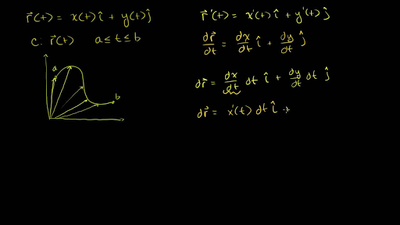 r⃗(t) = x(t) î + y(t) ĵ
C: r⃗(t)   a ≤ t ≤ b
a
b
r⃗'(t) = x'(t) î + y'(t) ĵ
dr⃗/dt = dx/dt î + dy/dt ĵ
dr⃗ = dx/dt dt î + dy/dt dt ĵ
dr⃗ = x'(t) dt î +